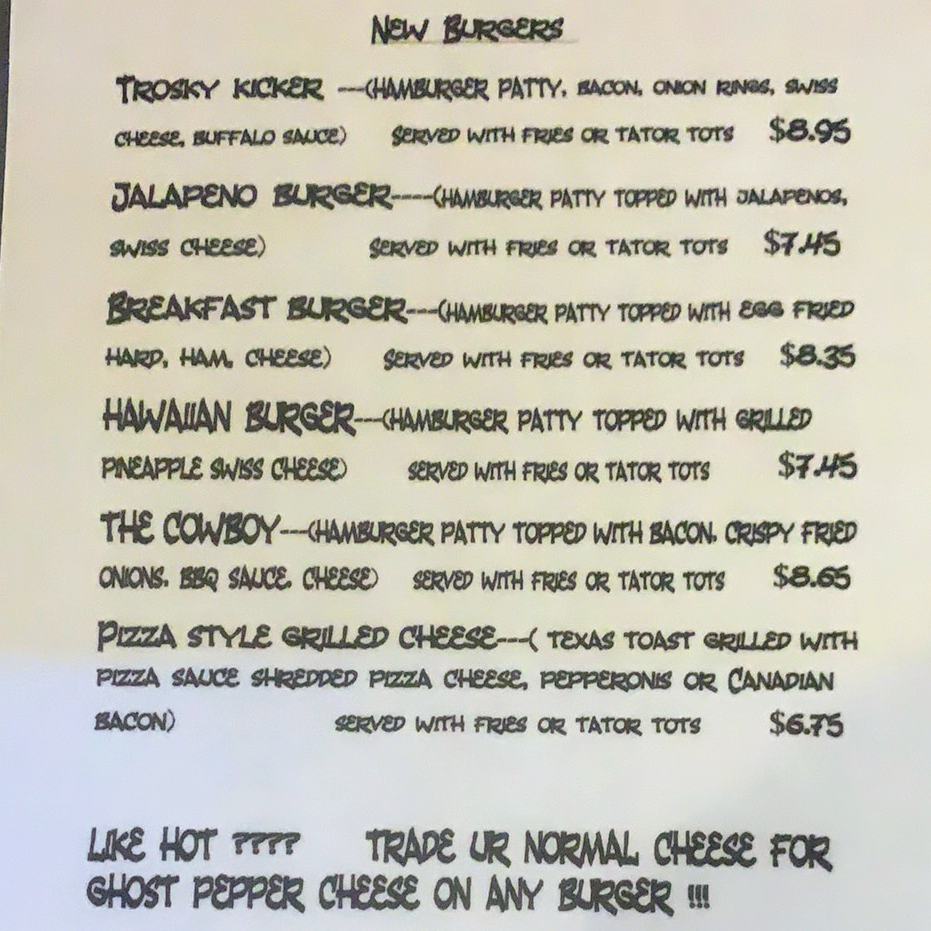 New Burgers
Trosky Kicker ---(hamburger patty, bacon, onion rings, swiss
cheese, buffalo sauce) served with fries or tator tots $8.95
Jalapeno Burger----(hamburger patty topped with jalapenos,
swiss cheese) served with fries or tator tots $7.45
Breakfast Burger---(hamburger patty topped with egg fried
hard, ham, cheese) served with fries or tator tots $8.35
Hawaiian Burger---(hamburger patty topped with grilled
pineapple swiss cheese) served with fries or tator tots $7.45
The Cowboy---(hamburger patty topped with bacon, crispy fried
onions, BBQ sauce, cheese) served with fries or tator tots $8.65
Pizza style grilled cheese---( Texas toast grilled with
pizza sauce shredded pizza cheese, pepperonis or Canadian
bacon) served with fries or tator tots $6.75
LIKE HOT ???? TRADE UR NORMAL CHEESE FOR
GHOST PEPPER CHEESE ON ANY BURGER !!!